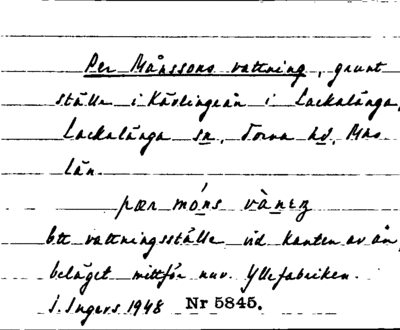 Per Månssons vattning, grunt
ställe i Kävlingeån i Lackalänga,
Lackalänga sn, Torna hd, Mlm
län.
pær mó̱ns vànɪŋ
Ett vattningsställe vid kanten av ån,
beläget mittför nuv. Yllefabriken.
I. Ingers 1948 Nr 5845.